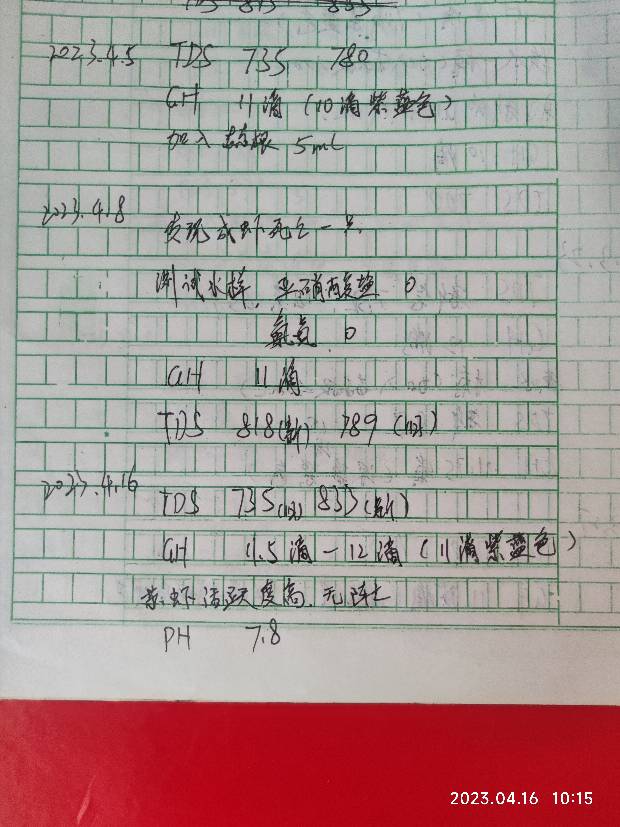 2023.4.5 TDS 735 780
GH 11滴 (10滴紫蓝色)
加入 5ml
2023.4.8
发现成虾死亡一只.
测试水样, 亚硝酸盐 0
氨氮 0
GH 11滴
TDS 818(新) 789 (旧)
2023.4.16
TDS 735(旧) 833(新)
GH 11.5滴-12滴 (11滴紫蓝色)
虾活跃度高, 无阵亡
PH 7.8
2023.04.16 10:15